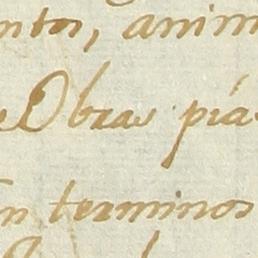 ntos, anim
Obras pia
n terminos